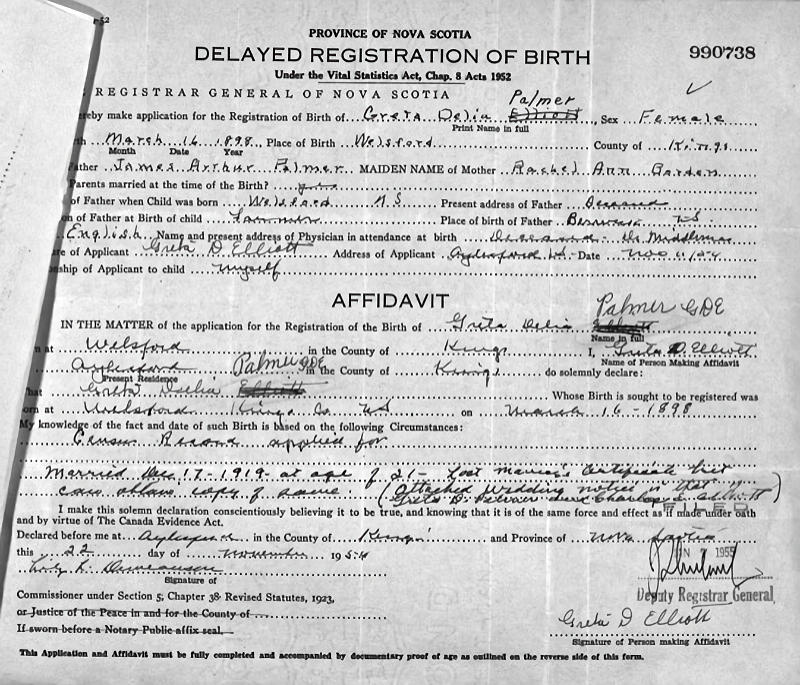 PROVINCE OF NOVA SCOTIA
DELAYED REGISTRATION OF BIRTH 990738
Under the Vital Statistics Act, Chap. 8 Acts 1952
REGISTRAR GENERAL OF NOVA SCOTIA
Palmer
reby make application for the Registration of Birth of Greta Delia Elliott, Sex Female
Print Name in full
th March 16 1898 Place of Birth Welsford County of Kings
Month Date Year
Father James Arthur Palmer MAIDEN NAME of Mother Rachel Ann
Parents married at the time of the Birth? yes
of Father when Child was born Welsford N.S. Present address of Father Deceased
on of Father at Birth of child Farmer Place of birth of Father Berwick N.S.
English Name and present address of Physician in attendance at birth Deceased Dr Middlemas
re of Applicant Greta D Elliott Address of Applicant Aylesford N.S. Date Nov
nship of Applicant to child myself
AFFIDAVIT
Palmer GDE
IN THE MATTER of the application for the Registration of the Birth of Greta Delia Elliott
Name in full
n at Welsford in the County of Kings I, Greta D Elliott
Name of Person Making Affidavit
Aylesford Palmer GDE in the County of Kings do solemnly declare:
Present Residence
hat Greta Delia Elliott Whose Birth is sought to be registered was
orn at Welsford Kings Co NS on March 16 - 1898
My knowledge of the fact and date of such Birth is based on the following Circumstances:
Census Record applied for
Married Dec 17 - 1919 - at age of 21 - Lost Marriage Certificate but
can obtain copy of same (Attached Wedding notice is that
Greta D. Palmer and Charles Elliott)
FILED
I make this solemn declaration conscientiously believing it to be true, and knowing that it is of the same force and effect as if made under oath
and by virtue of The Canada Evidence Act.
Declared before me at Aylesford in the County of Kings and Province of Nova Scotia
this 22 day of November 1954
1955
Signature of
Deputy Registrar General
Commissioner under Section 5, Chapter 38 Revised Statutes, 1923,
or Justice of the Peace in and for the County of
Greta D Elliott
If sworn before a Notary Public affix seal.
Signature of Person making Affidavit
This Application and Affidavit must be fully completed and accompanied by documentary proof of age as outlined on the reverse side of this form.